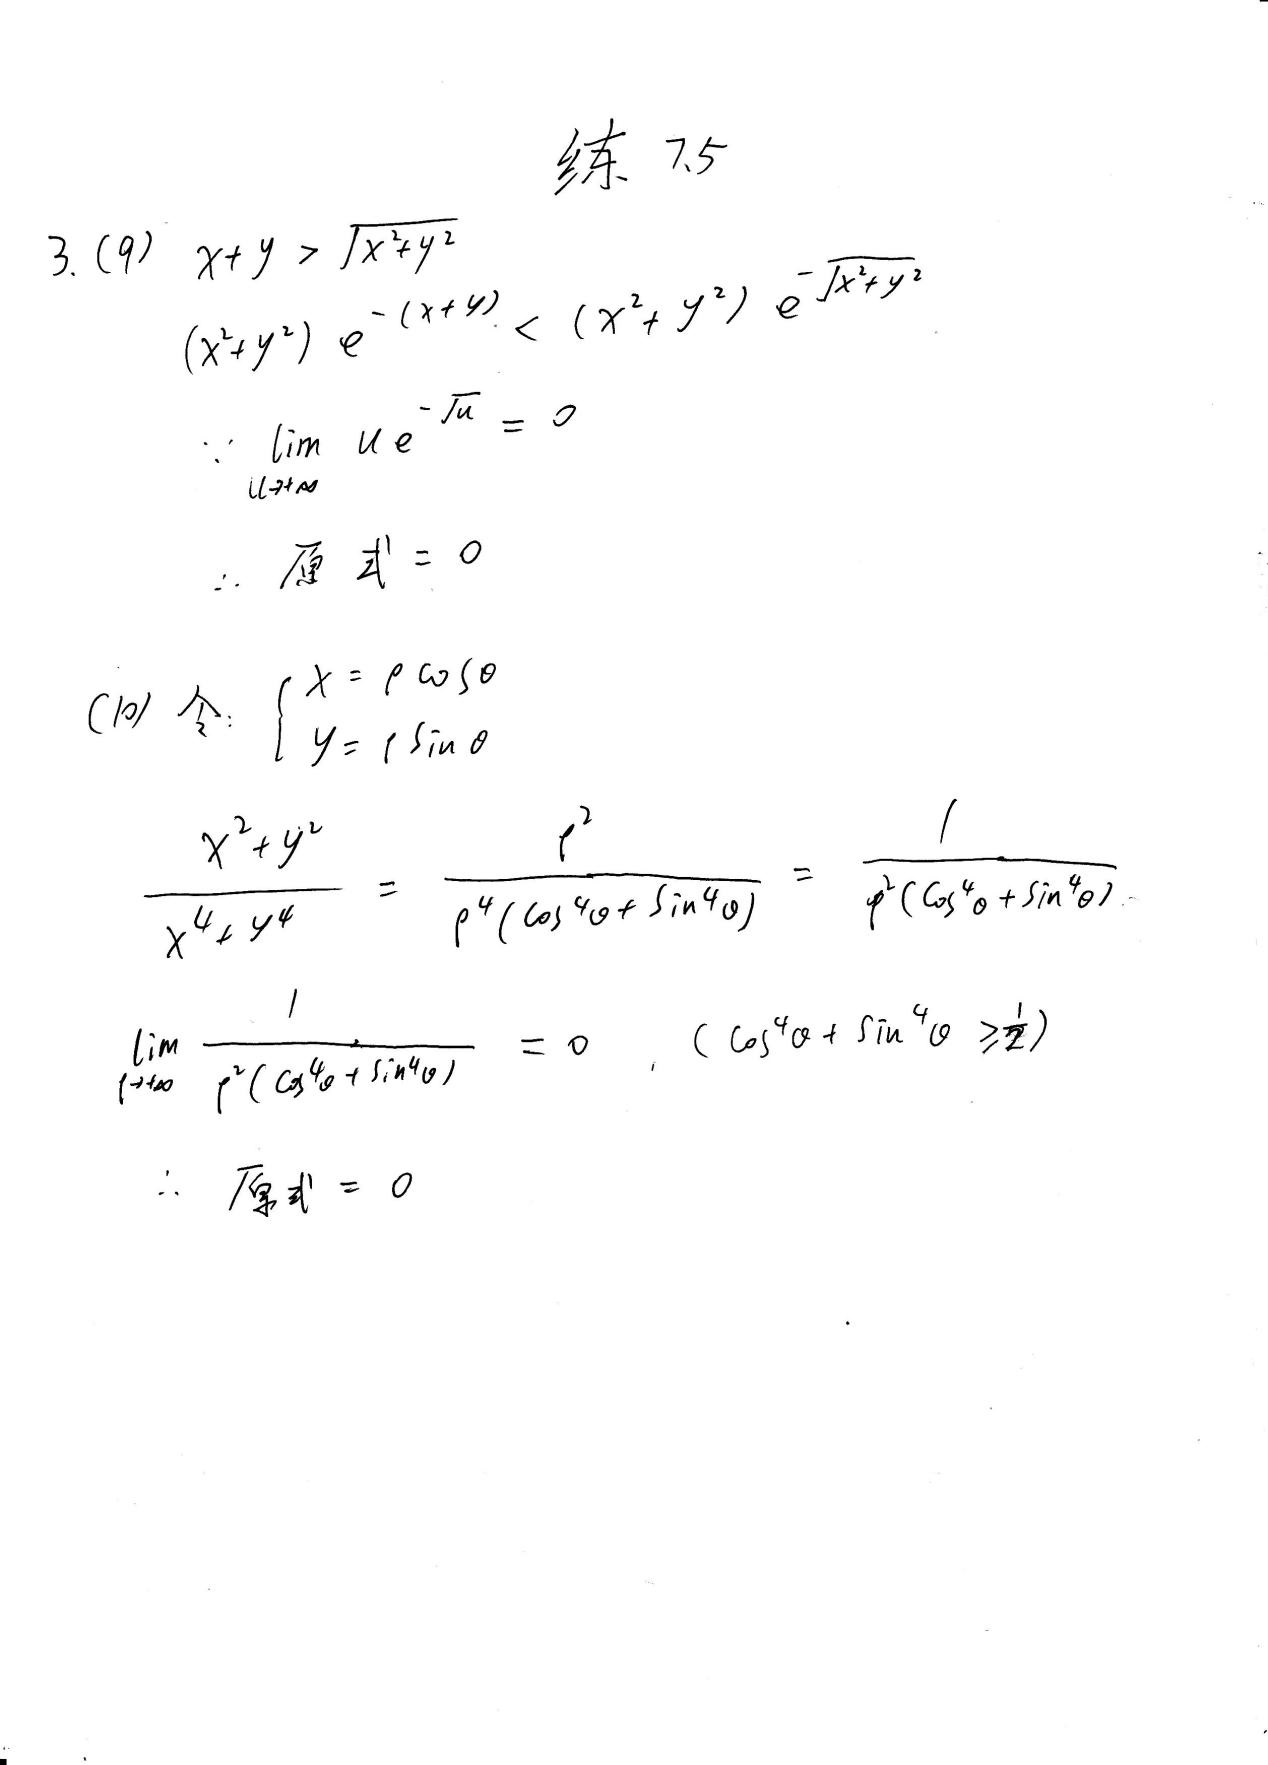 练 7.5
3. (9) x+y > √(x²+y²)
(x²+y²) e^{-(x+y)} < (x²+y²) e^{-√(x²+y²)}
∵ lim_{u→+∞} u e^{-√u} = 0
∴ 原式 = 0
(10) 令: { x = ρcosθ
y = ρsinθ
(x²+y²)/(x⁴+y⁴) = ρ²/(ρ⁴(cos⁴θ+sin⁴θ)) = 1/(ρ²(cos⁴θ+sin⁴θ)).
lim_{ρ→+∞} 1/(ρ²(cos⁴θ+sin⁴θ)) = 0 , (cos⁴θ+sin⁴θ ≥ 1/2)
∴ 原式 = 0